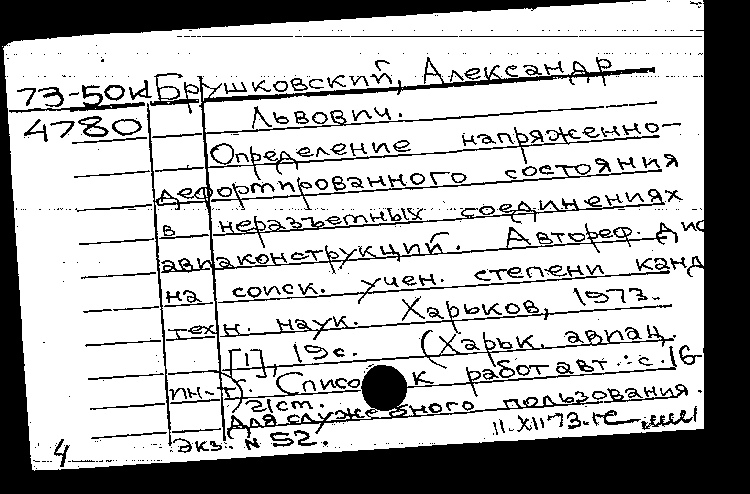 73-50к Брушковский, Александр
4780 Львович.
Определение напряженно-
дефортированного состояния
в неразъетных соединениях
авиаконструкций. Автореф. дис
на соиск. учен. степени канд
техн. наук. Харьков, 1973.
[1], 19 с. (Харьк. авиац.
ин-т) Список работ авт.: с. 16-
2/ст.
Для служебного пользования.
Экз. N 52. 11.XII 73.
4